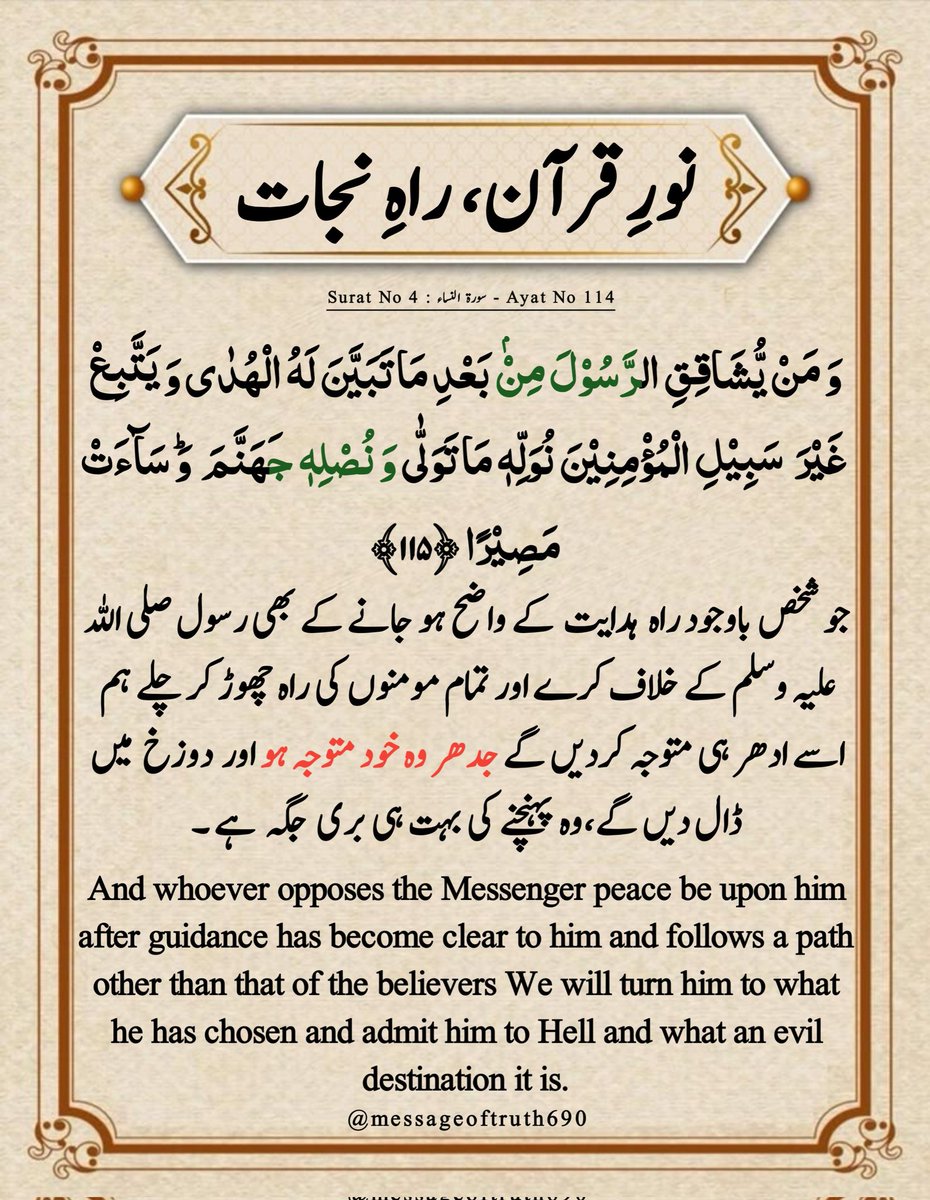 نورِ قرآن، راہِ نجات
Surat No 4 : سورة النساء - Ayat No 114
وَ مَنْ یُّشَاقِقِ الرَّسُوْلَ مِنْۢ بَعْدِ مَا تَبَیَّنَ لَهُ الْهُدٰى وَ یَتَّبِعْ
غَیْرَ سَبِیْلِ الْمُؤْمِنِیْنَ نُوَلِّهٖ مَا تَوَلّٰى وَ نُصْلِهٖ جَهَنَّمَ ؕ وَ سَآءَتْ
مَصِیْرًا ﴿۱۱۵﴾
جو شخص باوجود راہ ہدایت کے واضح ہو جانے کے بھی رسول صلی اللہ
علیہ وسلم کے خلاف کرے اور تمام مومنوں کی راہ چھوڑ کر چلے ہم
اسے ادھر ہی متوجہ کردیں گے جدھر وہ خود متوجہ ہو اور دوزخ میں
ڈال دیں گے، وہ پہنچنے کی بہت ہی بری جگہ ہے۔
And whoever opposes the Messenger peace be upon him
after guidance has become clear to him and follows a path
other than that of the believers We will turn him to what
he has chosen and admit him to Hell and what an evil
destination it is.
@messageoftruth690
@messageoftruth690